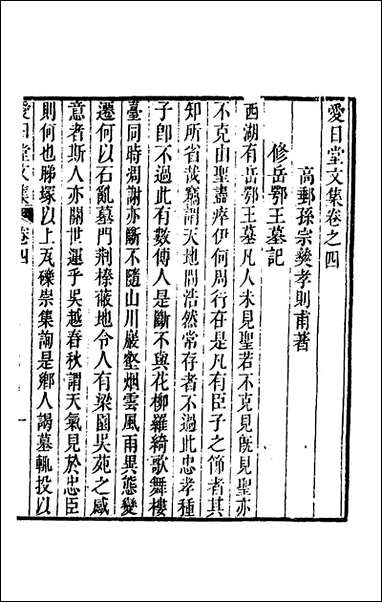 愛日堂文集卷之四
高郵孫宗彝孝則甫著
修岳鄂王墓記
西湖有岳鄂王墓凡人未見聖若不克見既見聖亦
不克由聖盡瘁伊何周行在是凡有臣子之節者其
知所省哉竊謂天地間浩然常存者不過此忠孝種
子卽不過此有數傳人是斷不與花柳羅綺歌舞樓
臺同時凋謝亦斷不隨山川巖壑烟雲風雨異態變
遷何以石亂墓門荆榛蔽地令人有梁園吳苑之感
意者斯人亦關世運乎吳越春秋謂天氣見於忠臣
則何也睇塚以上瓦礫崇集詢是鄉人謁墓輒投以
愛日堂文集 卷四 一